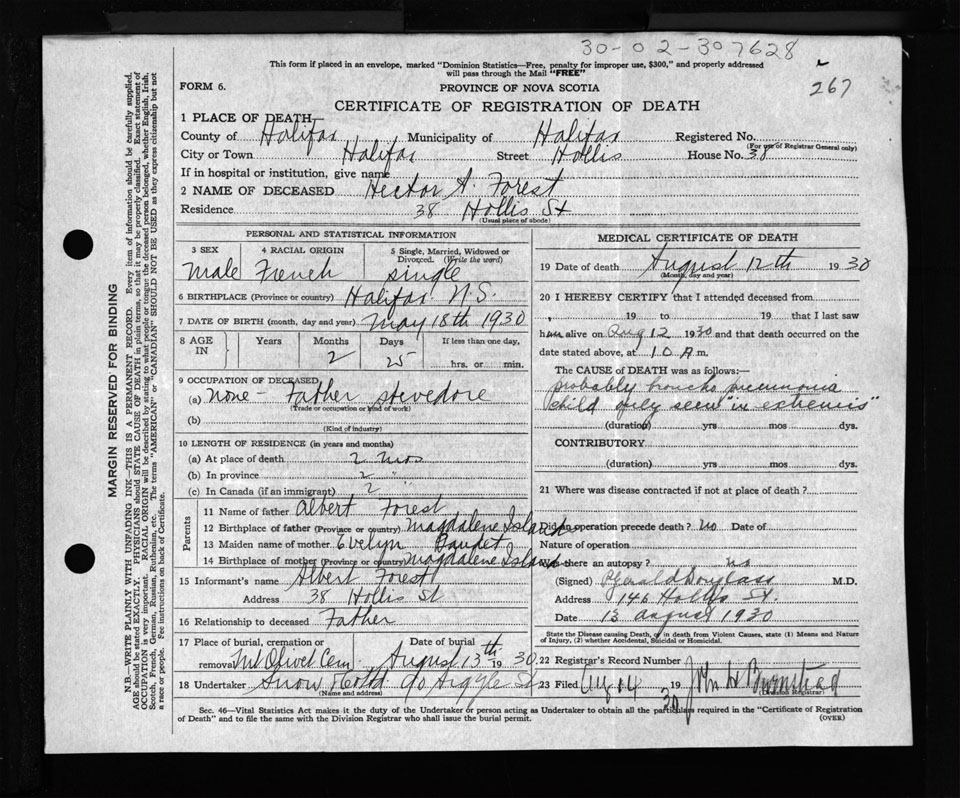 30-02-307628
267
This form if placed in an envelope, marked "Dominion Statistics—Free, penalty for improper use, $300," and properly addressed
will pass through the Mail "FREE"
FORM 6.
PROVINCE OF NOVA SCOTIA
CERTIFICATE OF REGISTRATION OF DEATH
1 PLACE OF DEATH—
County of Halifax Municipality of Halifax Registered No.
(For use of Registrar General only)
City or Town Halifax Street Hollis House No. 38
If in hospital or institution, give name
2 NAME OF DECEASED Hector A. Forest
Residence 38 Hollis St
(Usual place of abode)
MARGIN RESERVED FOR BINDING
N.B.—WRITE PLAINLY WITH UNFADING INK—THIS IS A PERMANENT RECORD. Every item of information should be carefully supplied.
AGE should be stated EXACTLY. PHYSICIANS should STATE CAUSE OF DEATH in plain terms, so that it may be properly classified. Exact statement of
OCCUPATION is very important. RACIAL ORIGIN will be described by stating to what people or tongue the deceased person belonged, whether English, Irish,
Scotch, French, German, Russian, Ruthenian, etc. The terms "AMERICAN" or "CANADIAN" SHOULD NOT BE USED as they express citizenship but not
a race or people. See instructions on back of Certificate.
PERSONAL AND STATISTICAL INFORMATION
3 SEX
Male
4 RACIAL ORIGIN
French
5 Single, Married, Widowed or
Divorced. (Write the word)
single
6 BIRTHPLACE (Province or country) Halifax N.S.
7 DATE OF BIRTH (month, day and year) May 18th 1930
8 AGE
IN
Years
Months
2
Days
25
If less than one day,
hrs. or min.
9 OCCUPATION OF DECEASED
(a) none - Father stevedore
(Trade or occupation or kind of work)
(b)
(Kind of industry)
10 LENGTH OF RESIDENCE (in years and months)
(a) At place of death 2 mos
(b) In province 2 "
(c) In Canada (if an immigrant) 2
Parents
11 Name of father Albert Forest
12 Birthplace of father (Province or country) Magdalene Island
13 Maiden name of mother Evelyn Boudet
14 Birthplace of mother (Province or country) Magdalene Island
15 Informant's name Albert Forest
Address 38 Hollis St
16 Relationship to deceased Father
17 Place of burial, cremation or
removal Mt Olivet Cem.
Date of burial
August 13th 1930
18 Undertaker Snow & Co Ltd 90 Argyle St
(Name and address)
MEDICAL CERTIFICATE OF DEATH
19 Date of death August 12th 1930
(Month, day and year)
20 I HEREBY CERTIFY that I attended deceased from
, 19 to 19 that I last saw
him alive on Aug 12 1930 and that death occurred on the
date stated above, at 10 A m.
The CAUSE of DEATH was as follows:—
probably broncho pneumonia
child only seen "in extremis"
(duration) yrs mos dys.
CONTRIBUTORY
(duration) yrs mos dys.
21 Where was disease contracted if not at place of death?
Did an operation precede death? no Date of
Nature of operation
Was there an autopsy? no
(Signed) Gerald Douglass M.D.
Address 146 Hollis St.
Date 13 August 1930
State the Disease causing Death, or in death from Violent Causes, state (1) Means and Nature
of Injury, (2) whether Accidental, Suicidal or Homicidal.
22 Registrar's Record Number
23 Filed Aug 14 1930 John H Burnstead
(Division Registrar)
Sec. 46—Vital Statistics Act makes it the duty of the Undertaker or person acting as Undertaker to obtain all the particulars required in the "Certificate of Registration
of Death" and to file the same with the Division Registrar who shall issue the burial permit.
(OVER)